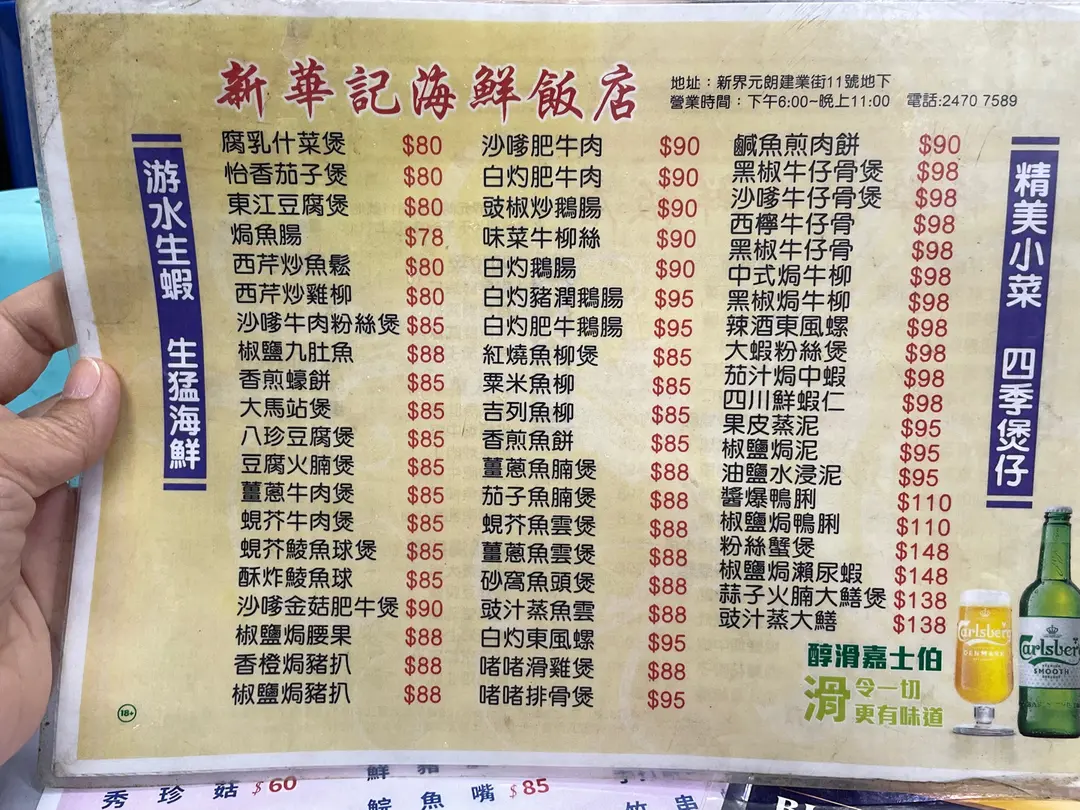 新華記海鮮飯店
地址：新界元朗建業街11號地下
營業時間：下午6:00~晚上11:00 電話:2470 7589
游水生蝦 生猛海鮮
腐乳什菜煲 $80
怡香茄子煲 $80
東江豆腐煲 $80
焗魚腸 $78
西芹炒魚鬆 $80
西芹炒雞柳 $80
沙嗲牛肉粉絲煲 $85
椒鹽九肚魚 $88
香煎蠔餅 $85
大馬站煲 $85
八珍豆腐煲 $85
豆腐火腩煲 $85
薑蔥牛肉煲 $85
蜆芥牛肉煲 $85
蜆芥鯪魚球煲 $85
酥炸鯪魚球 $85
沙嗲金菇肥牛煲 $90
椒鹽焗腰果 $88
香橙焗豬扒 $88
椒鹽焗豬扒 $88
沙嗲肥牛肉 $90
白灼肥牛肉 $90
豉椒炒鵝腸 $90
味菜牛柳絲 $90
白灼鵝腸 $90
白灼豬潤鵝腸 $95
白灼肥牛鵝腸 $95
紅燒魚柳煲 $85
粟米魚柳 $85
吉列魚柳 $85
香煎魚餅 $85
薑蔥魚腩煲 $88
茄子魚腩煲 $88
蜆芥魚雲煲 $88
薑蔥魚雲煲 $88
砂窩魚頭煲 $88
豉汁蒸魚雲 $88
白灼東風螺 $95
啫啫滑雞煲 $88
啫啫排骨煲 $95
鹹魚煎肉餅 $90
黑椒牛仔骨煲 $98
沙嗲牛仔骨煲 $98
西檸牛仔骨 $98
黑椒牛仔骨 $98
中式焗牛柳 $98
黑椒焗牛柳 $98
辣酒東風螺 $98
大蝦粉絲煲 $98
茄汁焗中蝦 $98
四川鮮蝦仁 $98
果皮蒸泥 $95
椒鹽焗泥 $95
油鹽水浸泥 $95
醬爆鴨脷 $110
椒鹽焗鴨脷 $110
粉絲蟹煲 $148
椒鹽焗瀨尿蝦 $148
蒜子火腩大鱔煲 $138
豉汁蒸大鱔 $138
精美小菜 四季煲仔
醇滑嘉士伯
滑 令一切
更有味道
Carlsberg
DENMARK
Carlsberg
SMOOTH
18+
秀珍菇 $60
鮮
魚嘴 $85